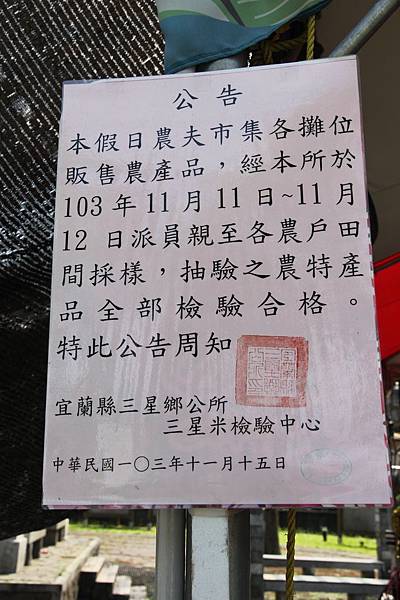 公告
本假日農夫市集各攤位
販售農產品，經本所於
103年11月11日~11月
12日派員親至各農戶田
間採樣，抽驗之農特產
品全部檢驗合格。
特此公告周知
宜蘭縣三星鄉公所
三星米檢驗中心
中華民國一〇三年十一月十五日